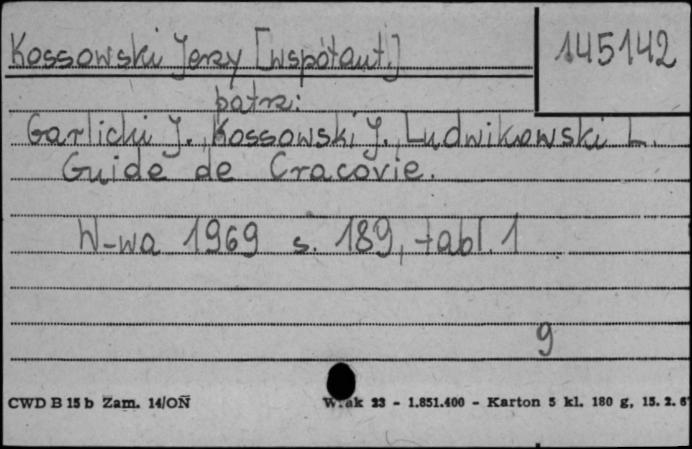 Kossowski Jerzy [współaut.]
145142
patrz:
Garlicki J., Kossowski J., Ludwikowski L.
Guide de Cracovie.
W-wa 1969 s. 189, tabl. 1
9
CWD B 15 b Zam. 14/ON
23 - 1.851.400 - Karton 5 kl. 180 g, 15. 2. 6